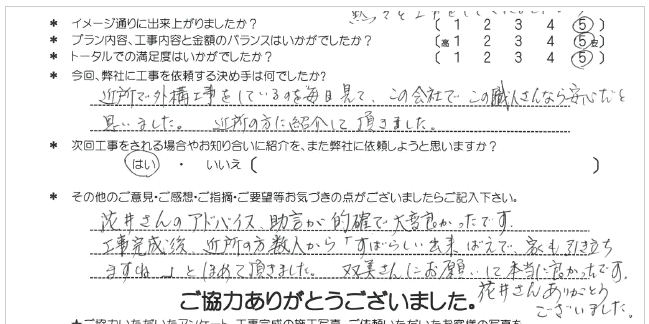 ＊ イメージ通りに出来上がりましたか？ （ 1 2 3 4 5 ）
＊ プラン内容、工事内容と金額のバランスはいかがでしたか？ （高 1 2 3 4 5 安）
＊ トータルでの満足度はいかがでしたか？ （ 1 2 3 4 5 ）
＊ 今回、弊社に工事を依頼する決め手は何でしたか？
近所で外構工事をしているのを毎日見て、この会社でこの職人さんなら安心だと
思いました。 近所の方に紹介して頂きました。
＊ 次回工事をされる場合やお知り合いに紹介を、また弊社に依頼しようと思いますか？
はい ・ いいえ （ ）
＊ その他のご意見・ご感想・ご指摘・ご要望等お気づきの点がございましたらご記入下さい。
花井さんのアドバイス、助言が的確で大変良かったです。
工事完成後、近所の方数人から「すばらしい出来ばえで、家も引き立ち
ますね。」とほめて頂きました。 双美さんにお願いして本当に良かったです。
花井さんありがとう
ございました。
ご協力ありがとうございました。